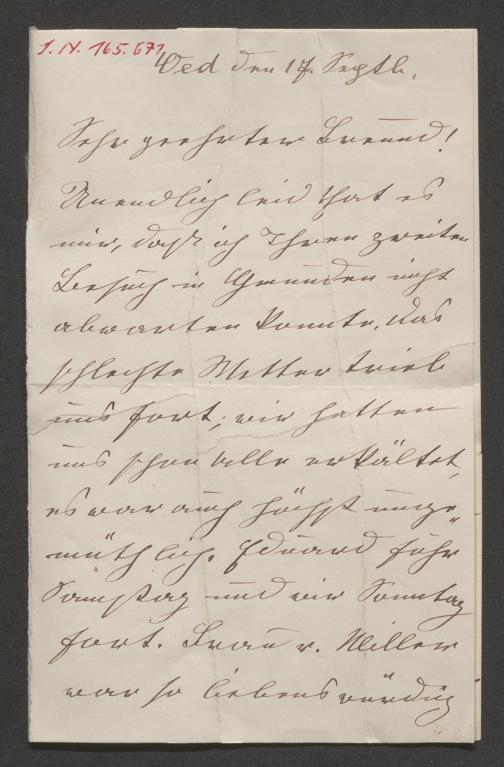 J. N. 165.671
Wed den 17. Septb.
Sehr geehrter Freund!
Unendlich leid that es
mir, daß ich Ihren zweiten
Besuch in Gmunden nicht
abwarten konnte. Das
schlechte Wetter trieb
uns fort; wir hatten
uns schon alle erkältet,
es war auch höchst unge-
müthlich. Eduard fuhr
Samstag und wir Sonntag
fort. Frau v. Miller
war so liebenswürdig